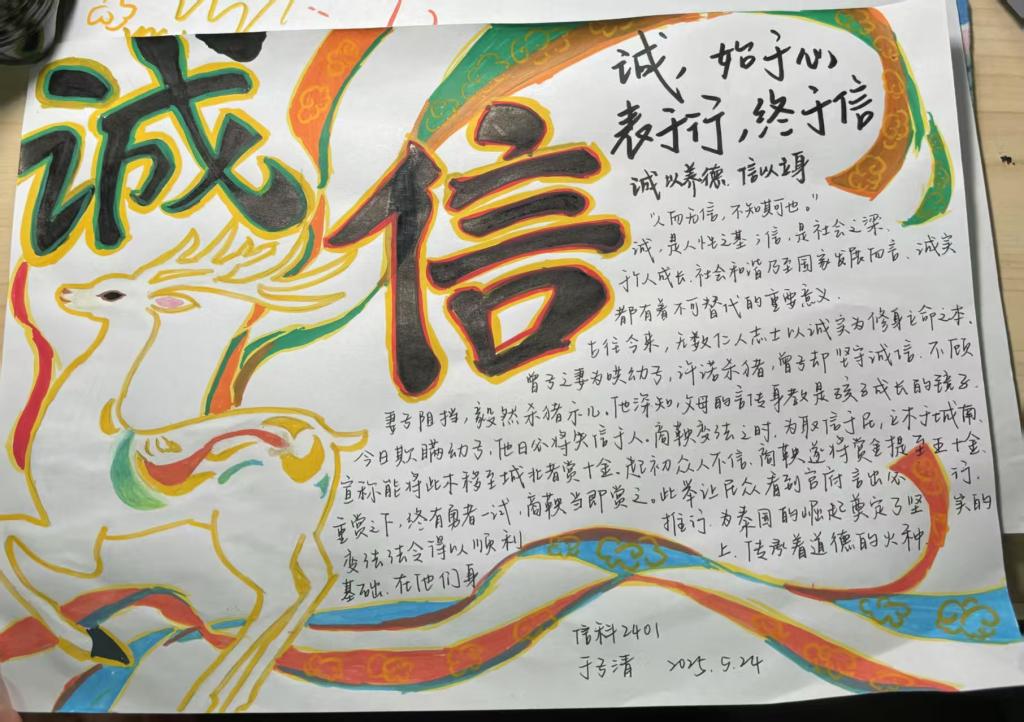 诚信
诚，始于心，
表于行，终于信
诚以养德 信以立身
“人而无信，不知其可也。”
诚，是人性之基；信，是社会之梁.
于个人成长、社会和谐乃至国家发展而言、诚实
都有着不可替代的重要意义.
古往今来，无数仁人志士以诚实为修身立命之本.
曾子之妻为哄幼子，许诺杀猪，曾子却坚守诚信、不顾
妻子阻挡，毅然杀猪示儿。他深知，父母的言传身教是孩子成长的镜子.
今日欺瞒幼子，他日必将失信于人。商鞅变法之时，为取信于民，立木于城南、
宣称能将此木移至城北者赏十金、起初众人不信，商鞅遂将赏金提至五十金.
重赏之下，终有勇者一试，商鞅当即赏之。此举让民众看到官府言出必行.
变法法令得以顺利推行、为秦国的崛起奠定了坚实的
基础、在他们身上、传承着道德的火种.
信科2401
于子清 2025.5.24